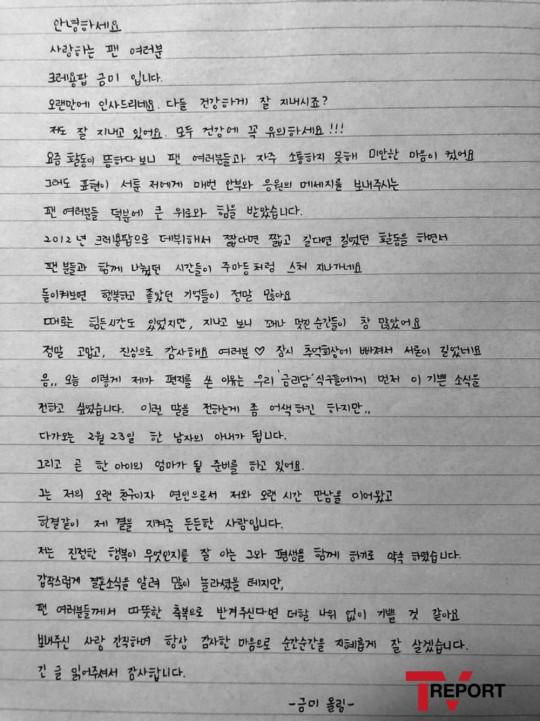 안녕하세요
사랑하는 팬 여러분
크레용팝 금미 입니다.
오랜만에 인사드리네요. 다들 건강하게 잘 지내시죠?
저도 잘 지내고 있어요. 모두 건강에 꼭 유의하세요!!!
요즘 활동이 뜸하다 보니 팬 여러분들과 자주 소통하지 못해 미안한 마음이 컸어요
그래도 표현이 서툰 저에게 매번 안부와 응원의 메세지를 보내주시는
팬 여러분들 덕분에 큰 위로와 힘을 받았습니다.
2012년 크레용팝으로 데뷔해서 짧다면 짧고 길다면 길었던 활동을 하면서
팬 분들과 함께 나눴던 시간들이 주마등처럼 스쳐 지나가네요
돌이켜보면 행복하고 좋았던 기억들이 정말 많아요
때로는 힘든시간도 있었지만, 지나고 보니 꽤나 멋진 순간들이 참 많았어요
정말 고맙고, 진심으로 감사해요 여러분 ♡ 잠시 추억회상에 빠져서 서론이 길었네요
음,, 오늘 이렇게 제가 편지를 쓴 이유는 우리 '금리담' 식구들에게 먼저 이 기쁜 소식을
전하고 싶었습니다. 이런 말을 전하는게 좀 어색하긴 하지만,,
다가오는 2월 23일 한 남자의 아내가 됩니다.
그리고 곧 한 아이의 엄마가 될 준비를 하고 있어요.
그는 저의 오랜 친구이자 연인으로서 저와 오랜 시간 만남을 이어왔고
한결같이 제 곁을 지켜준 든든한 사람입니다.
저는 진정한 행복이 무엇인지를 잘 아는 그와 평생을 함께 하기로 약속 하였습니다.
갑작스럽게 결혼소식을 알려 많이 놀라셨을 테지만,
팬 여러분들께서 따뜻한 축복으로 반겨주신다면 더할 나위 없이 기쁠 것 같아요
보내주신 사랑 간직하며 항상 감사한 마음으로 순간순간을 지혜롭게 잘 살겠습니다.
긴 글 읽어주셔서 감사합니다.
-금미 올림-
TV REPORT